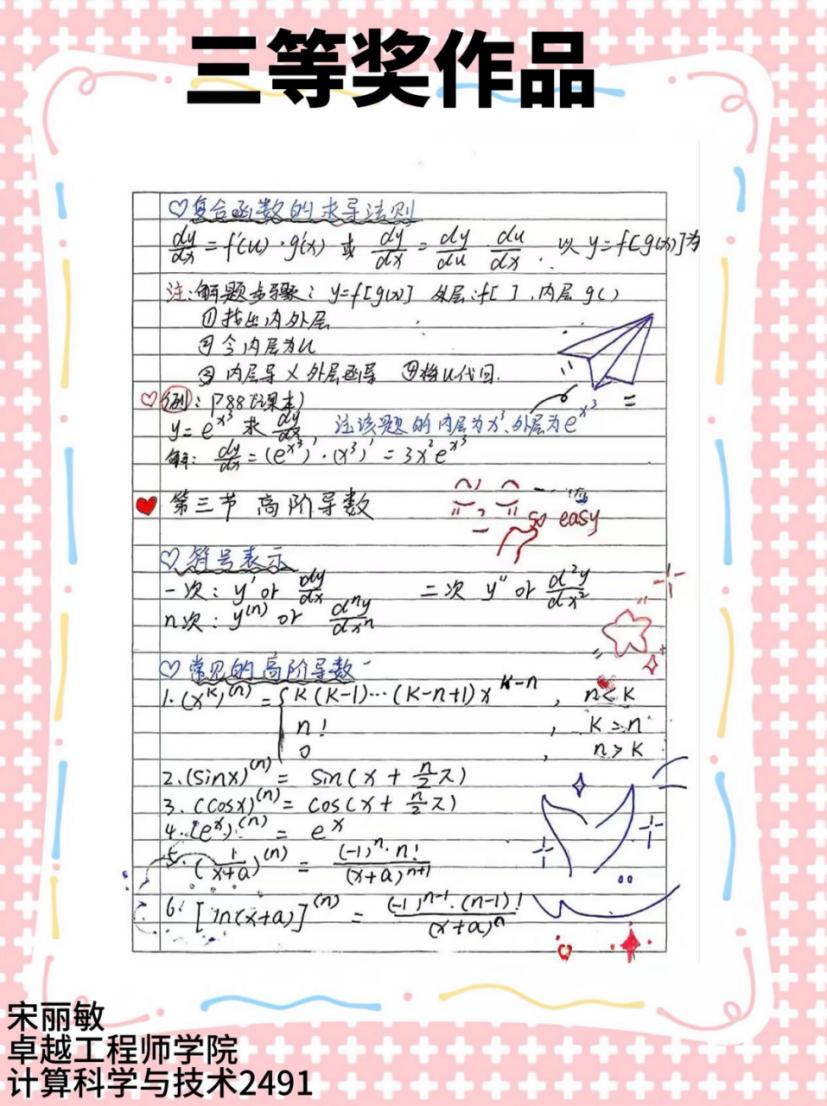 三等奖作品
♡复合函数的求导法则
dy/dx = f'(u)·g'(x) 或 dy/dx = dy/du · du/dx . 以 y=f[g(x)]为
注:解题步骤: y=f[g(x)] 外层:f[ ] , 内层 g( )
①找出内外层
②令内层为u
③内层导×外层函导 ④将u代回.
♡例: P88(课本)
y=e^x³ 求 dy/dx 注该题的内层为x³,外层为e^x³
解: dy/dx = (e^x³)'·(x³)' = 3x²e^x³
♥ 第三节 高阶导数
so easy
♡符号表示
一次: y' or dy/dx 二次 y'' or d²y/dx²
n次: y^(n) or dⁿy/dxⁿ
♡常见的高阶导数
1.(x^k)^(n) = { k(k-1)…(k-n+1)x^k-n , n<k
n! , k=n
0 , n>k
2.(sinx)^(n) = sin(x + n/2 π)
3.(cosx)^(n) = cos(x + n/2 π)
4.(e^x)^(n) = e^x
5.(1/(x+a))^(n) = (-1)^n·n!/(x+a)^n+1
6.[ln(x+a)]^(n) = (-1)^n-1·(n-1)!/(x+a)^n
宋丽敏
卓越工程师学院
计算科学与技术2491